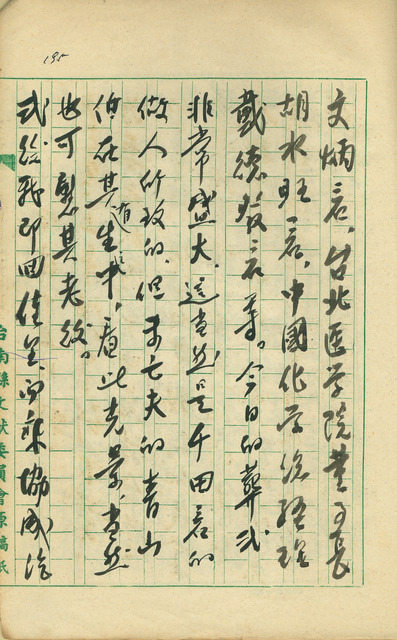 195
文炳君，台北医学院董事長
胡水旺君，中國化学総経理
戴德發君等。今日的葬式
非常盛大，這当然是千田君的
做人所致的，但未亡夫的青山
伯在其遺生中，看此光景，当然
也可慰其老紋。
式終我即回佳里，而乘協成汽
台南縣文献委員會原稿紙